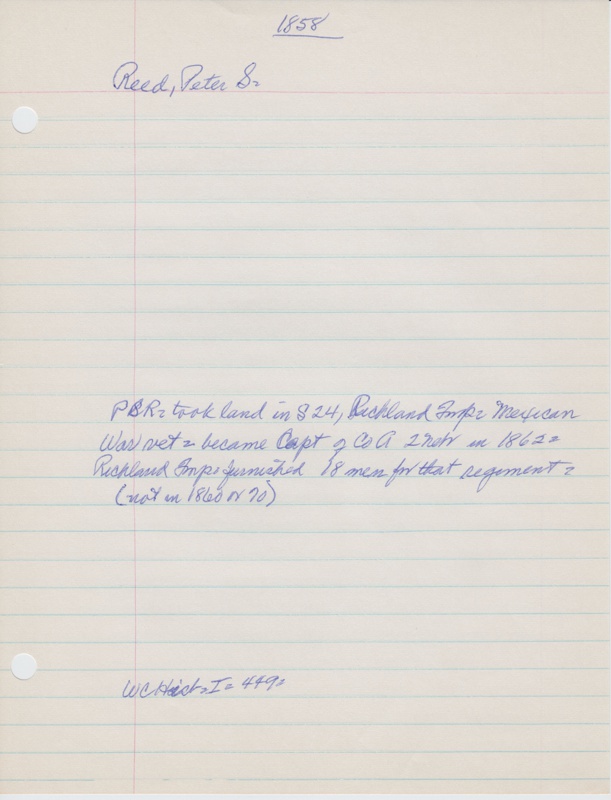 1858
Reed, Peter S=
PSR= took land in S 24, Richland Twp= Mexican
War vet= became Capt of Co A 2 Nebr in 1862=
Richland Twp= furnished 18 men for that regiment=
(not in 1860 or 70)
WC Hist= I= 449=